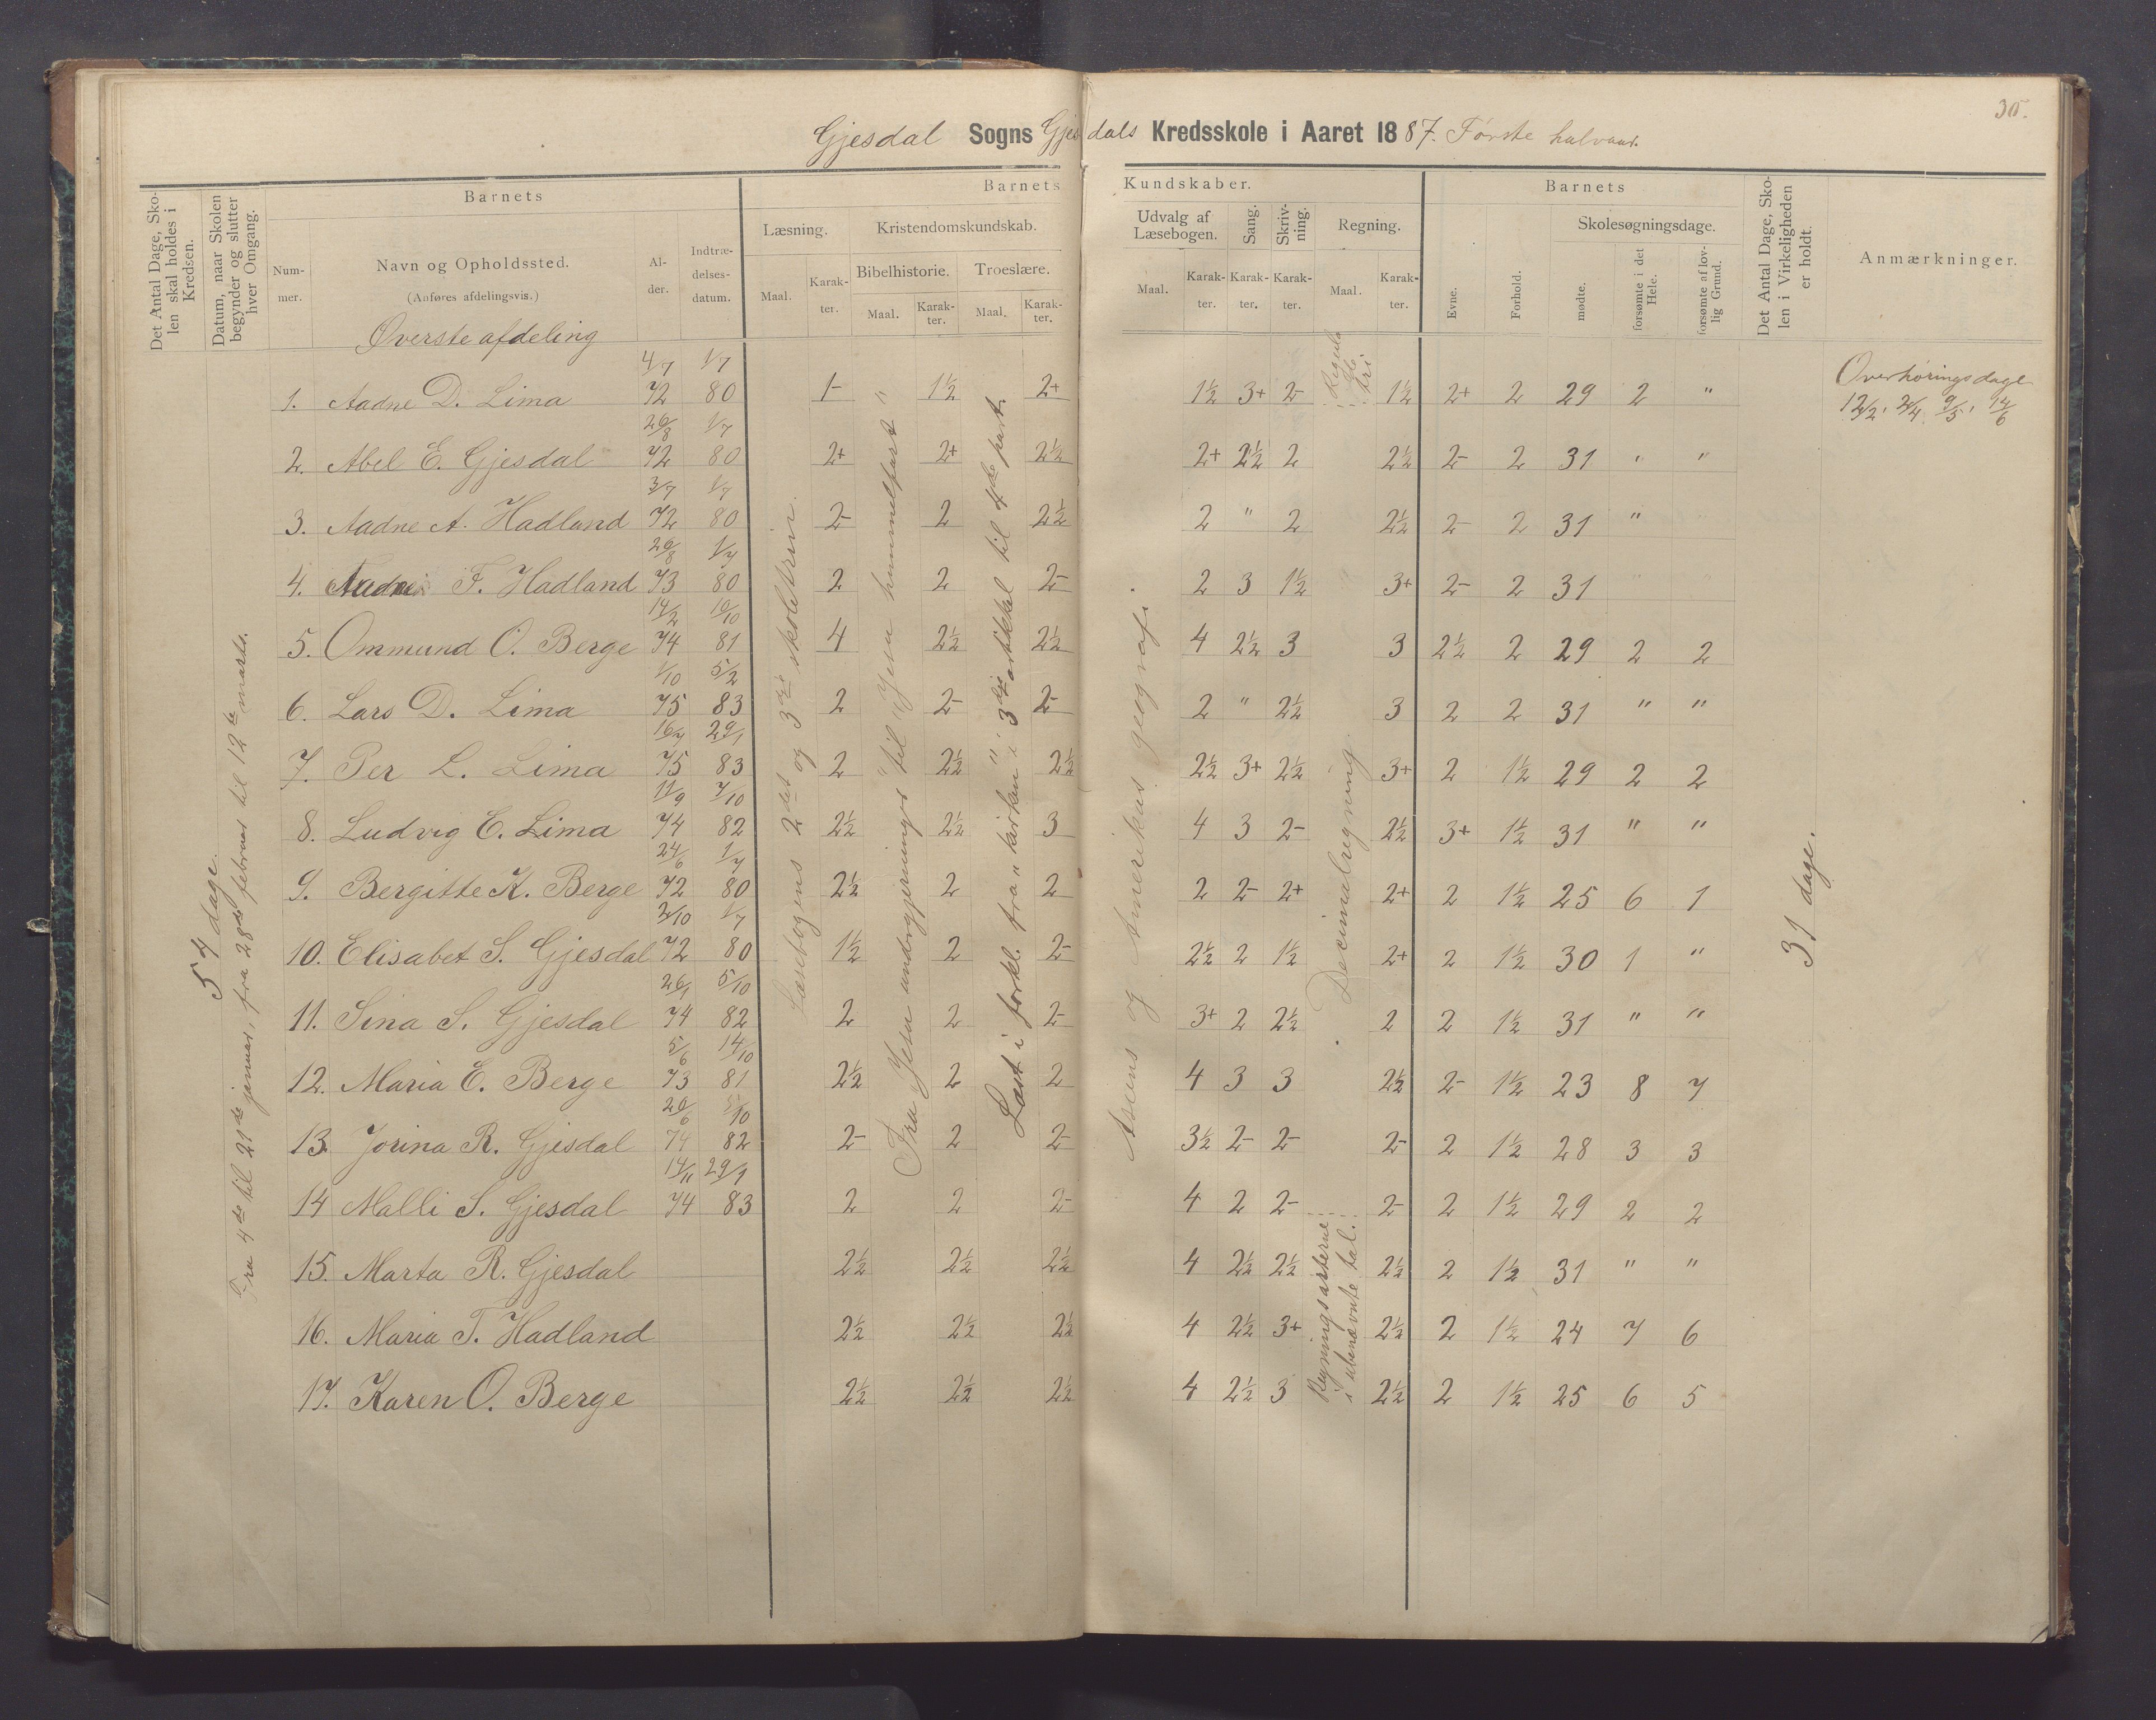 30.
Gjesdal Sogns Gjesdals Kredsskole i Aaret 1887. Første halvaar.
Det Antal Dage, Skolen skal holdes i Kredsen.
Datum, naar Skolen begynder og slutter hver Omgang.
Barnets
Nummer.
Navn og Opholdssted.
(Anføres afdelingsvis.)
Alder.
Indtrædelsesdatum.
Barnets Kundskaber.
Læsning.
Maal. Karakter.
Kristendomskundskab.
Bibelhistorie. Troeslære.
Maal. Karakter. Maal. Karakter.
Udvalg af Læsebogen.
Maal. Karakter.
Sang.
Karakter.
Skrivning.
Karakter.
Regning.
Maal. Karakter.
Barnets
Evne.
Forhold.
Skolesøgningsdage.
mødte.
forsømte i det Hele.
forsømte af lovlig Grund.
Det Antal Dage, Skolen i Virkeligheden er holdt.
Anmærkninger.
Øverste afdeling
1. Aadne D. Lima 4/7 72 1/7 80 1- 1½ 2+ 1½ 3+ 2- 1½ 2+ 2 29 2 "
2. Abel E. Gjesdal 26/8 72 1/7 80 2+ 2+ 2½ 2+ 2½ 2 2½ 2- 2 31 " "
3. Aadne A. Hadland 3/7 72 1/7 80 2- 2 2½ 2 " 2 2½ 2- 2 31 "
4. F. Hadland 26/8 73 1/7 80 2 2 2- 2 3 1½ 3+ 2- 2 31
5. Ommund O. Berge 14/2 74 10/10 81 4 2½ 2½ 4 2½ 3 3 2½ 2 29 2 2
6. Lars D. Lima 1/10 75 5/2 83 2 2- 2- 2 " 2½ 3 2 2 31 " "
7. Per L. Lima 16/7 75 29/1 83 2 2½ 2½ 2½ 3+ 2½ 3+ 2 1½ 29 2 2
8. Ludvig E. Lima 11/9 74 7/10 82 2½ 2½ 3 4 3 2- 2½ 3+ 1½ 31 " "
9. Bergitte K. Berge 24/6 72 1/7 80 2½ 2 2 2 2- 2+ 2+ 2 1½ 25 6 1
10. Elisabet S. Gjesdal 3/10 72 1/7 80 1½ 2 2- 2½ 2 1½ 2+ 2 1½ 30 1 "
11. Sina S. Gjesdal 26/1 74 5/10 82 2 2 2- 3+ 2 2½ 2 2 1½ 31 " "
12. Maria E. Berge 5/6 73 14/10 81 2½ 2 2 4 3 3 2½ 2- 1½ 23 8 7
13. Jorina R. Gjesdal 26/6 74 5/10 82 2- 2 2- 3½ 2- 2- 2- 2 1½ 28 3 3
14 Malli S. Gjesdal 14/11 74 29/1 83 2 2 2- 4 2 2- 2- 2 1½ 29 2 2
15. Marta R. Gjesdal 2½ 2½ 2½ 4 2½ 2½ 2½ 2 1½ 31 " "
16. Maria T. Hadland 2½ 2½ 2½ 4 2½ 3+ 2½ 2 1½ 24 7 6
17. Karen O. Berge 2½ 2½ 2½ 4 2½ 3 2½ 2 1½ 25 6 5
54 dage.
Fra 4de til 21de januar, fra 28de februar til 12te marts.
Læsebogens 2det og 3dje skoletrin.
Fra Jesu undergjerninger" til "Jesu himmelfart"
Læst i forkl. fra "kirken" i 3dje artikkel til 4de part.
Asiens og Amerikas geografi.
Regula de tri
Decimalregning.
Regningsarterne i ubenævnte tal.
31 dage.
Overhøringsdage
12/2, 2/4, 9/5, 14/6